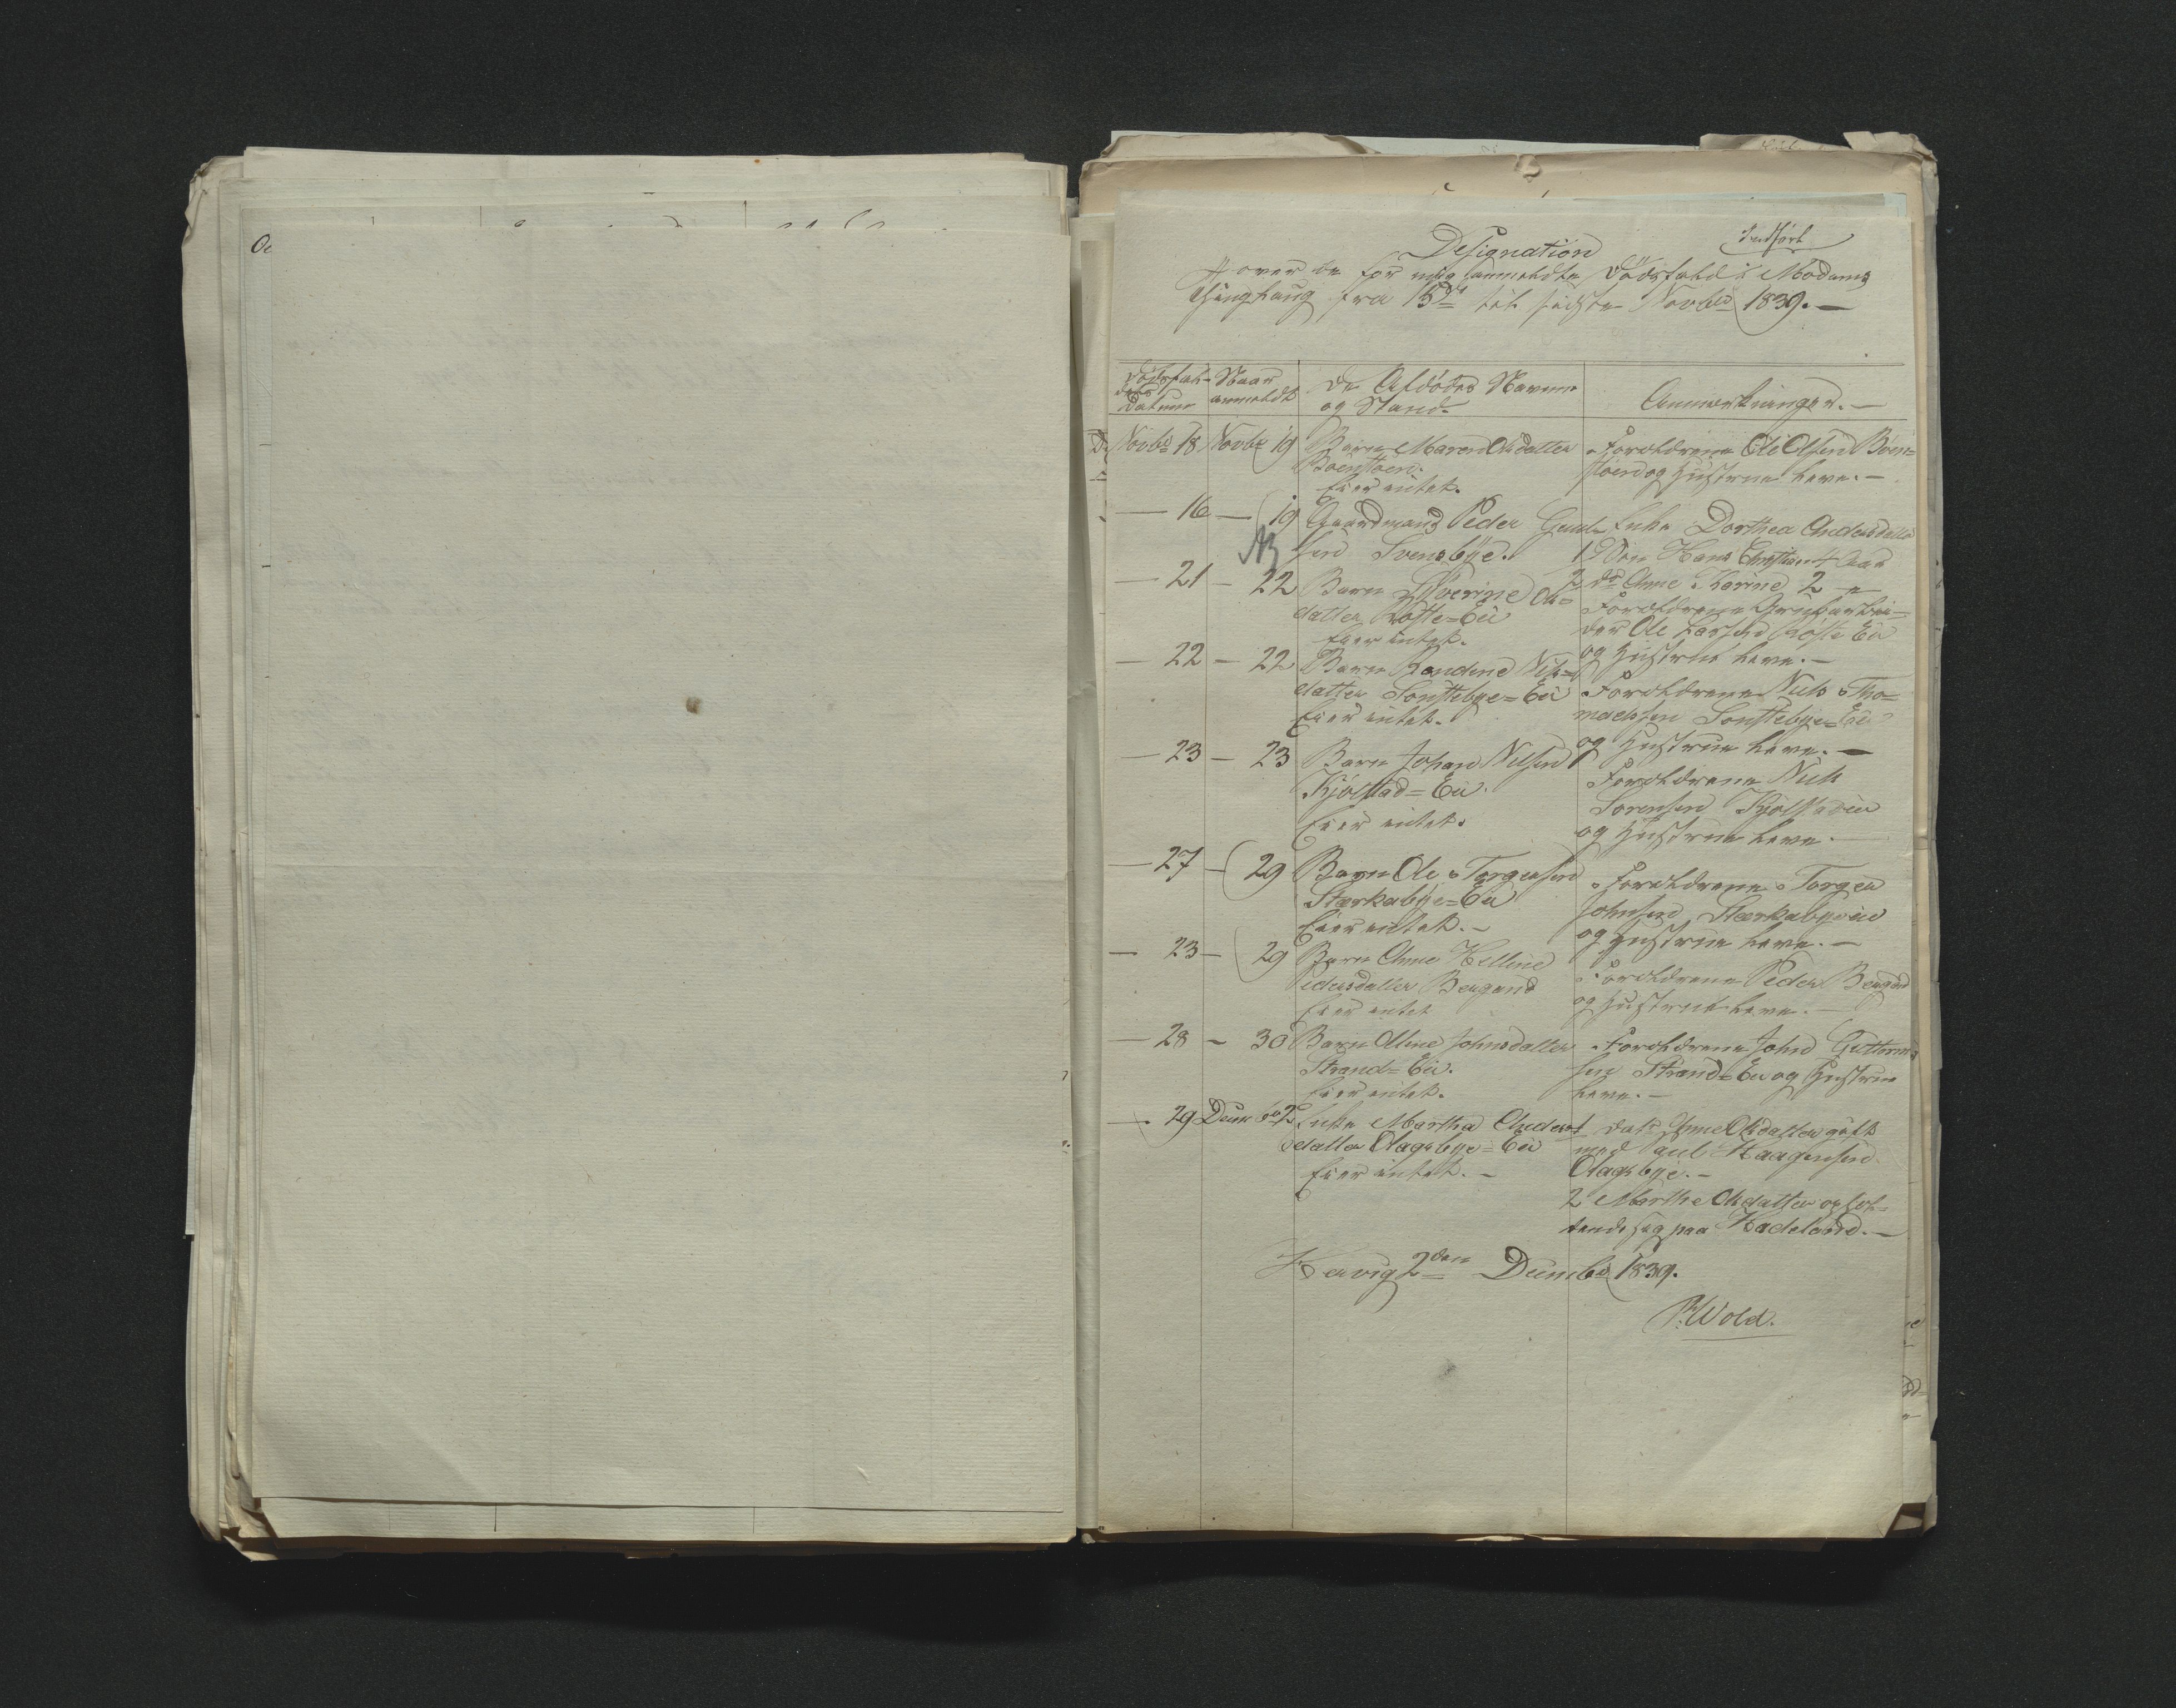 Oc
Indført
Designation
over de for mig anmeldte Dødsfald i Modums
Thinglaug fra 15de til sidste Novbr 1839.—
Dødsfal-
dets
Datum
Naar
anmeldt
De Afdødes Navne
og Stand.
Anmærkninger.—
Novbr 18 Novbr 19 Barn Maren Olsdatter
Eier intet.
Forældrene Ole Olsen
og Hustrue leve.—
— 16 — 19 Gaardmand Peder Gul-
sen Svensbye.
Enke Dorthea Andersdatter
1 Søn Hans Christian 4 Aar
2 do Anne Karine 2 "
— 21 — 22 Barn Ols-
datter Røste=Eie
Eier intet.
Forældrene Grubearbei-
der Ole Larsen Røste Eie
og Hustrue leve.—
— 22 — 22 Barn Randine Nils=
datter Sønstebye=Eie
Eier intet.
Forældrene Niels Tho=
mæssen Sønstebye=Eie
og Hustrue leve.—
— 23 — 23 Barn Johan Nilsen
Kjølstad=Eie.
Eier intet.
Forældrene Niels
Sørensen Kjølstadeie
og Hustrue leve.—
— 27 — 29 Barn Ole Torgersen
Stærkebye=Eie
Eier intet.—
Forældrene Torger
Johnsen Stærkebyeeie
og Hustrue leve.—
— 23 — 29 Barn Anne Helline
Pedersdatter Bergand
Eier intet
Forældrene Peder Bergand
og Hustrue leve.—
— 28 — 30 Barn Oline Johnsdatter
Strand=Eie.
Eier intet.
Forældrene John Guttorms
sen Strand=Eie og Hustrue
leve.—
— 29 Decembr 2 Enke Martha Anders
datter Olagsbye=Eie
Eier intet.—
1 Datr Anne Olsdatter gift
med Paul Haagensen
Olagsbye.—
2 Marthe Olsdatter ophol-
dende sig paa Hadeland.—
Hervig 2den Decembr 1839.
P. Wold.